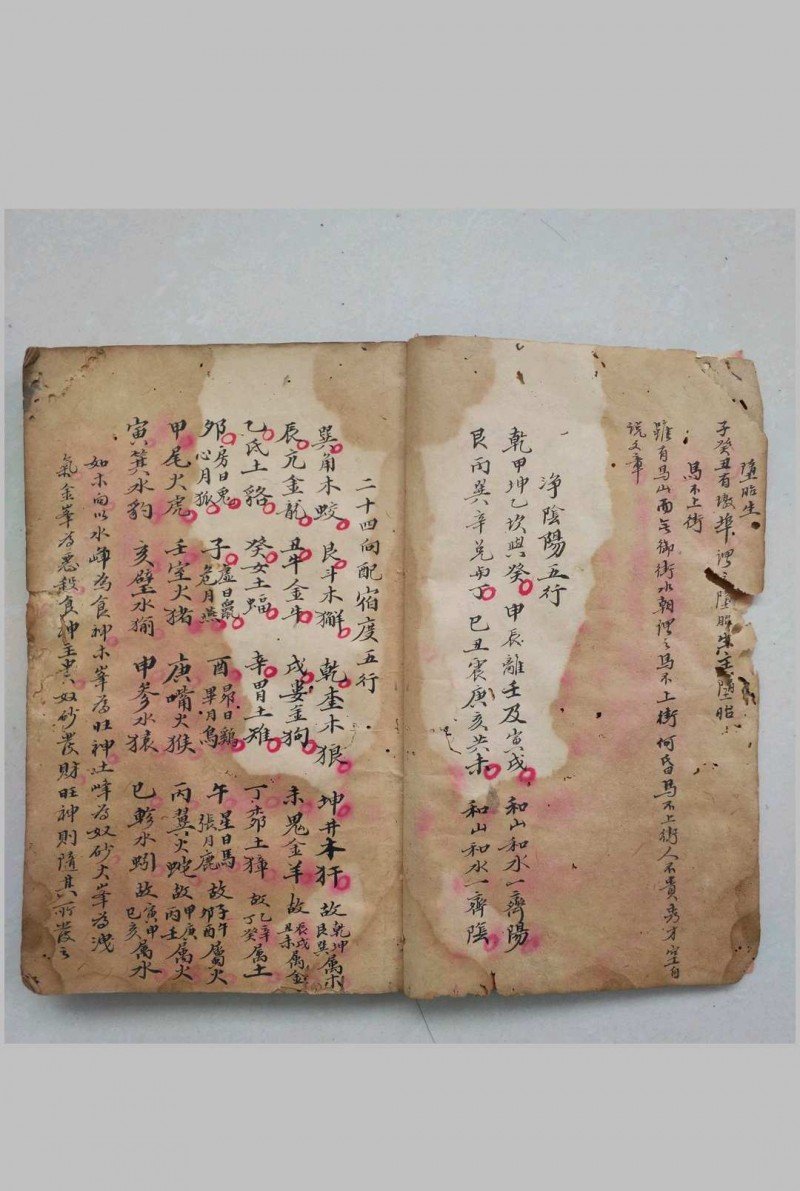 墮胎生
子癸丑有墩埠謂之墮胎生主墮胎
馬不上街
雖有馬山而無御街水朝謂之馬不上街何昏馬不上街人不貴秀才空自
說文章
淨陰陽五行
乾甲坤乙坎與癸 申辰離壬及寅戌 和山和水一齊陽
艮丙巽辛兌與丁 巳丑震庚亥共未 和山和水一齊陰
二十四向配宿度五行
巽角木蛟 艮斗木獬 乾奎木狼 坤井木犴 故乾坤艮巽属木
辰亢金龍 丑牛金牛 戌婁金狗 未鬼金羊 故辰戌丑未属金
乙氐土貉 癸女土蝠 辛胃土雉 丁柳土獐 故乙辛丁癸属土
卯房日兎心月狐 子虛日鼠危月燕 酉昴日鷄畢月烏 午星日馬張月鹿 故子午卯酉属火
甲尾火虎 壬室火猪 庚嘴火猴 丙翼火蛇 故甲庚丙壬属火
寅箕水豹 亥壁水㺄 申參水猿 巳軫水蚓 故寅申巳亥属水
如木向以水峰為食神木峯為旺神土峰為奴砂火峯為洩
氣金峯為惡殺食神主貴奴砂發財旺神則隨其所發之